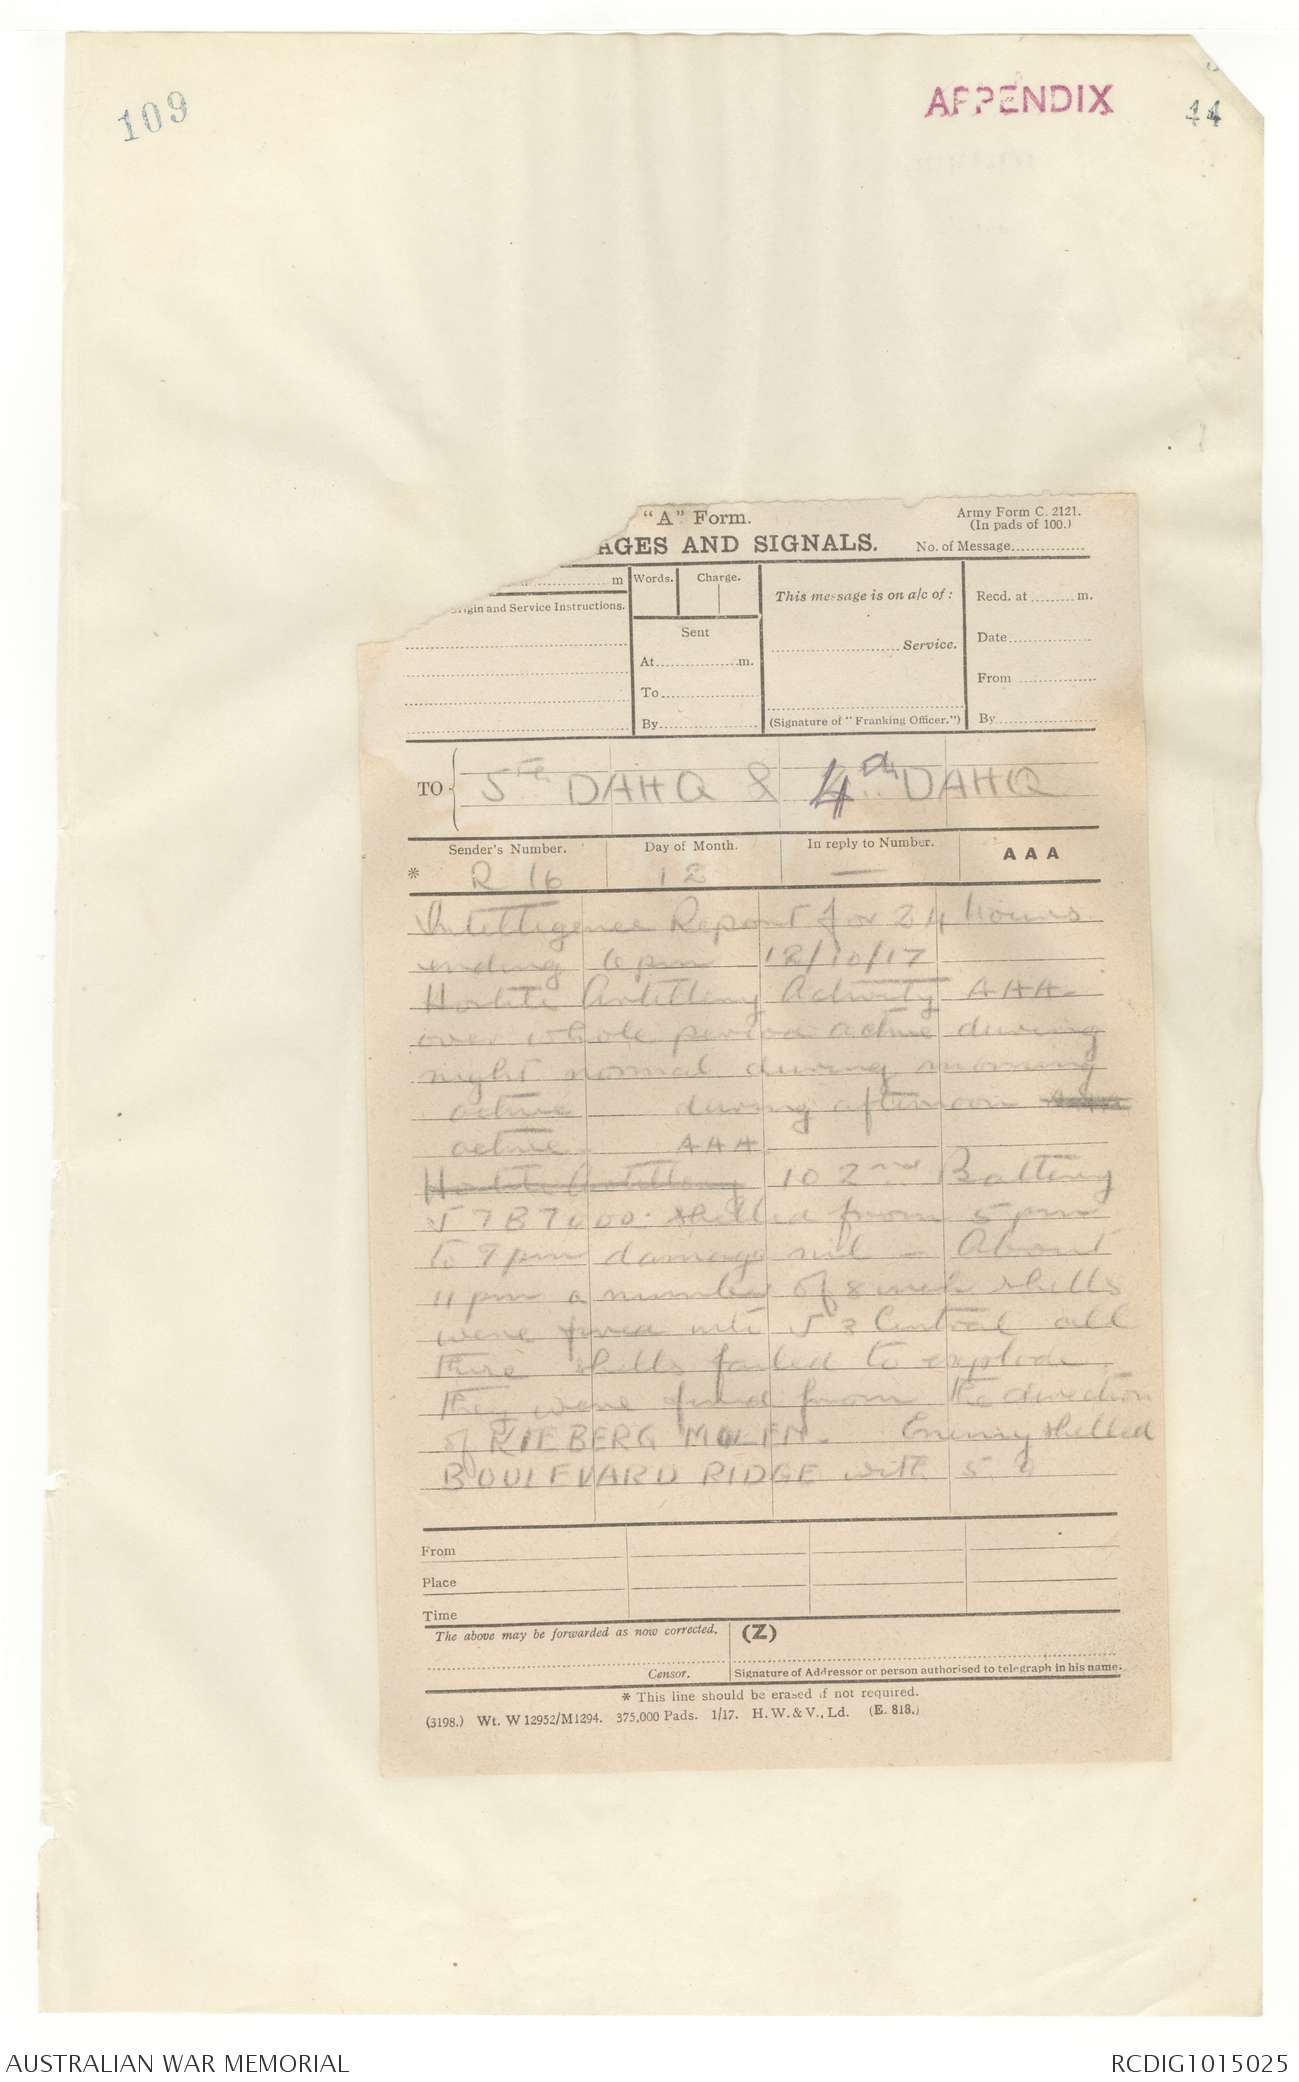 109
APPENDIX 44
"A" Form.
Army Form C. 2121.
(In pads of 100.)
AGES AND SIGNALS.
No. of Message...............
m
Words.
Charge.
This message is on a/c of :
Recd. at .........m.
rigin and Service Instructions.
Sent
Date...............
.......................Service.
At.................m.
From ...............
To...................
By...................
(Signature of "Franking Officer.")
By...................
TO
5th DAHQ & 4th DAHQ
Sender's Number.
Day of Month.
In reply to Number.
AAA
* R 16
12
—
Intelligence Report for 24 hours
ending 6 pm 12/10/17
Hostile Artillery Activity AAA
over whole period active during
night normal during morning
active during afternoon
active AAA
Hostile Artillery 102nd Battery
shelled from 5pm
to 9pm damage nil - About
11 pm a number of 8 inch shells
were fired into J 2 Central all
these shells failed to explode.
They were fired from the direction
of KIEBERG MOLEN. Enemy shelled
BOULEVARD RIDGE with 5.9
From
Place
Time
The above may be forwarded as now corrected.
(Z)
Censor.
Signature of Addressor or person authorised to telegraph in his name.
* This line should be erased if not required.
(3198.) Wt. W 12952/M1294. 375,000 Pads. 1/17. H. W. & V., Ld. (E. 818.)
AUSTRALIAN WAR MEMORIAL
RCDIG1015025